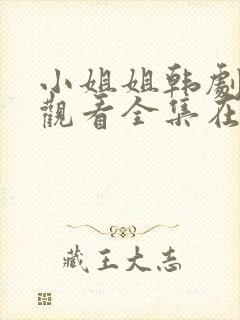 小姐姐韩劇
觀看全集在
藏王大志